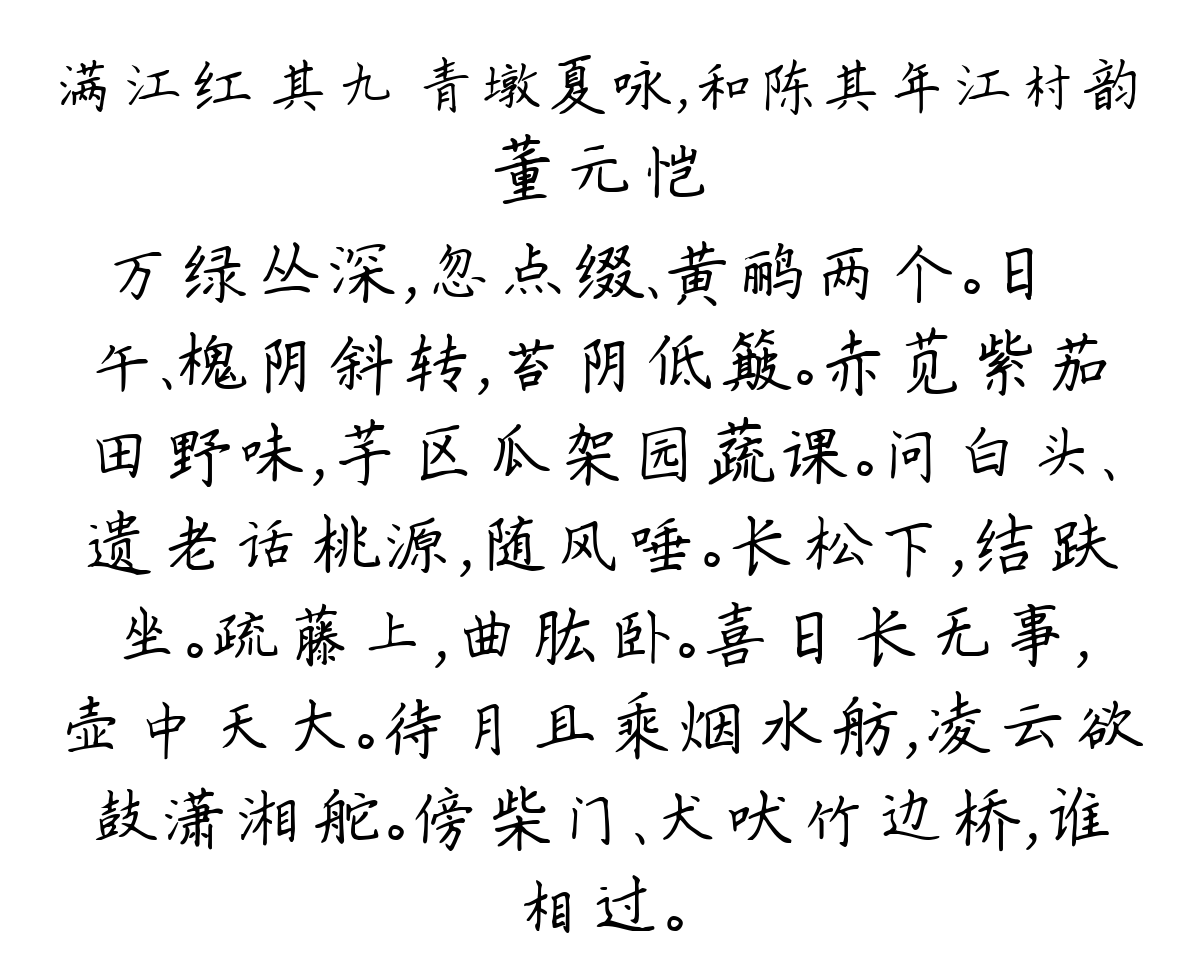 满江红 其九 青墩夏咏,和陈其年江村韵
董元恺
万绿丛深,忽点缀、黄鹂两个。日
午、槐阴斜转,苔阴低簸。赤苋紫茄
田野味,芋区瓜架园蔬课。问白头、
遗老话桃源,随风唾。长松下,结趺
坐。疏藤上,曲肱卧。喜日长无事,
壶中天大。待月且乘烟水舫,凌云欲
鼓潇湘舵。傍柴门、犬吠竹边桥,谁
相过。